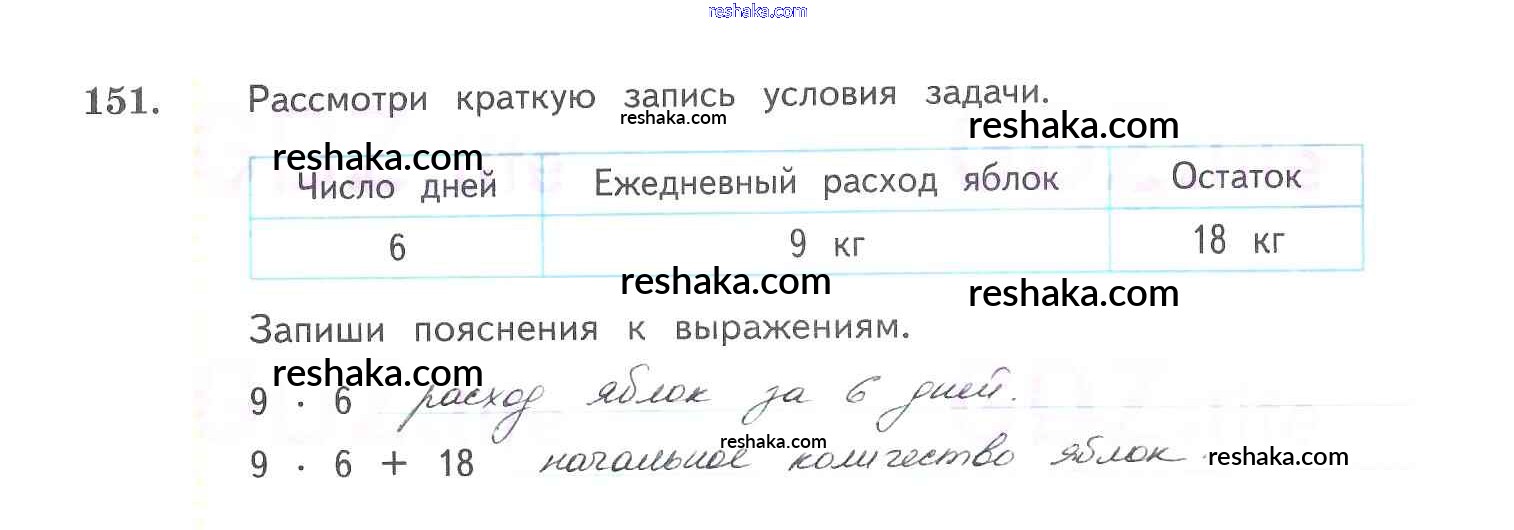 reshaka.com
151. Рассмотри краткую запись условия задачи.
reshaka.com
reshaka.com
reshaka.com
Число дней Ежедневный расход яблок Остаток
6 9 кг 18 кг
reshaka.com
reshaka.com
Запиши пояснения к выражениям.
reshaka.com
9 · 6 расход яблок за 6 дней.
reshaka.com
9 · 6 + 18 начальное количество яблок
reshaka.com